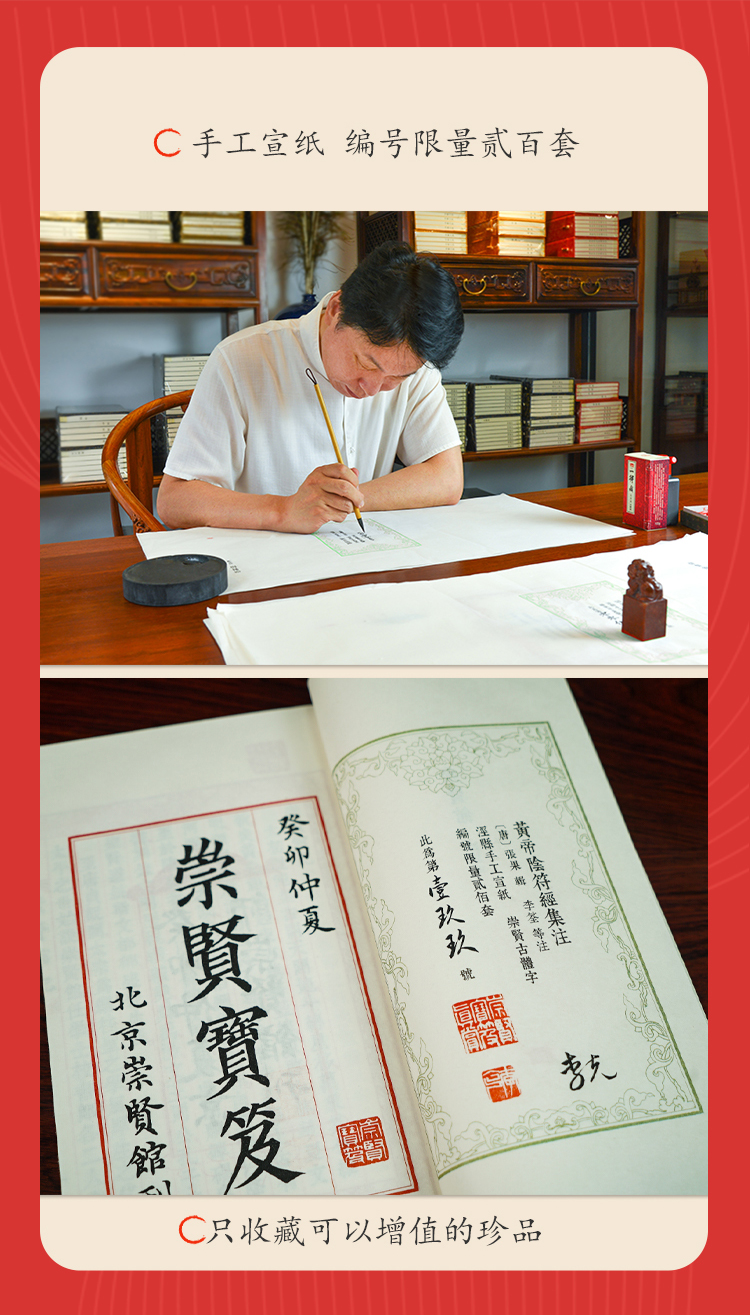 手工宣纸 编号限量贰百套
癸卯仲夏
崇賢寶笈
北京崇賢館
黃帝陰符經集注
〔唐〕張果 輯 李筌 等注
涇縣手工宣紙 崇賢古體字
編號限量貳佰套
此爲第壹玖玖號
李克
只收藏可以增值的珍品